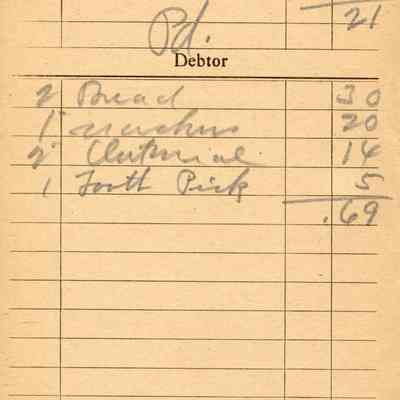 21
Pd.
Debtor
2 Bread 30
1 crackers 20
2 14
1 Tooth Pick 5
.69